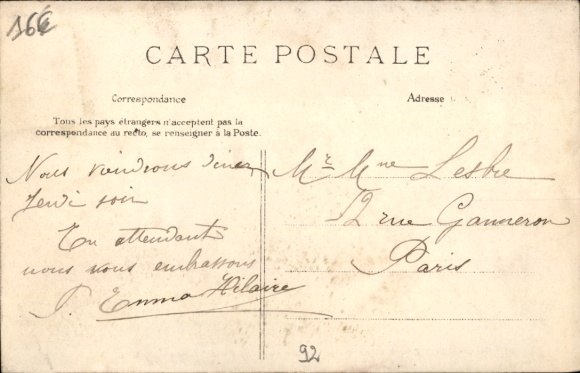 16€
CARTE POSTALE
Correspondance
Adresse
Tous les pays étrangers n'acceptent pas la
correspondance au recto, se renseigner à la Poste.
Nous viendrons diner
Jeudi soir
En attendant
nous vous embrassons
Emma Hilaire
Mr Mme Lesbre
12 rue Ganneron
Paris
92